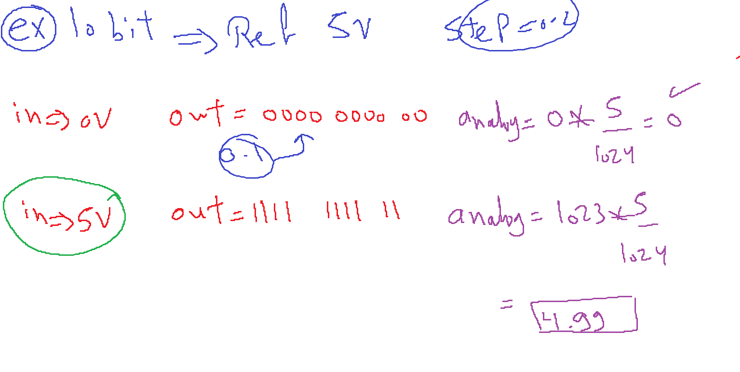 ex 10 bit ⇒ Ref 5V step=0.2
in⇒0V out = 0000 0000 00 analog= 0* 5/1024 = 0 ✓
0.1
in⇒5V out=1111 1111 11 analog = 1023*5/1024
= 4.99